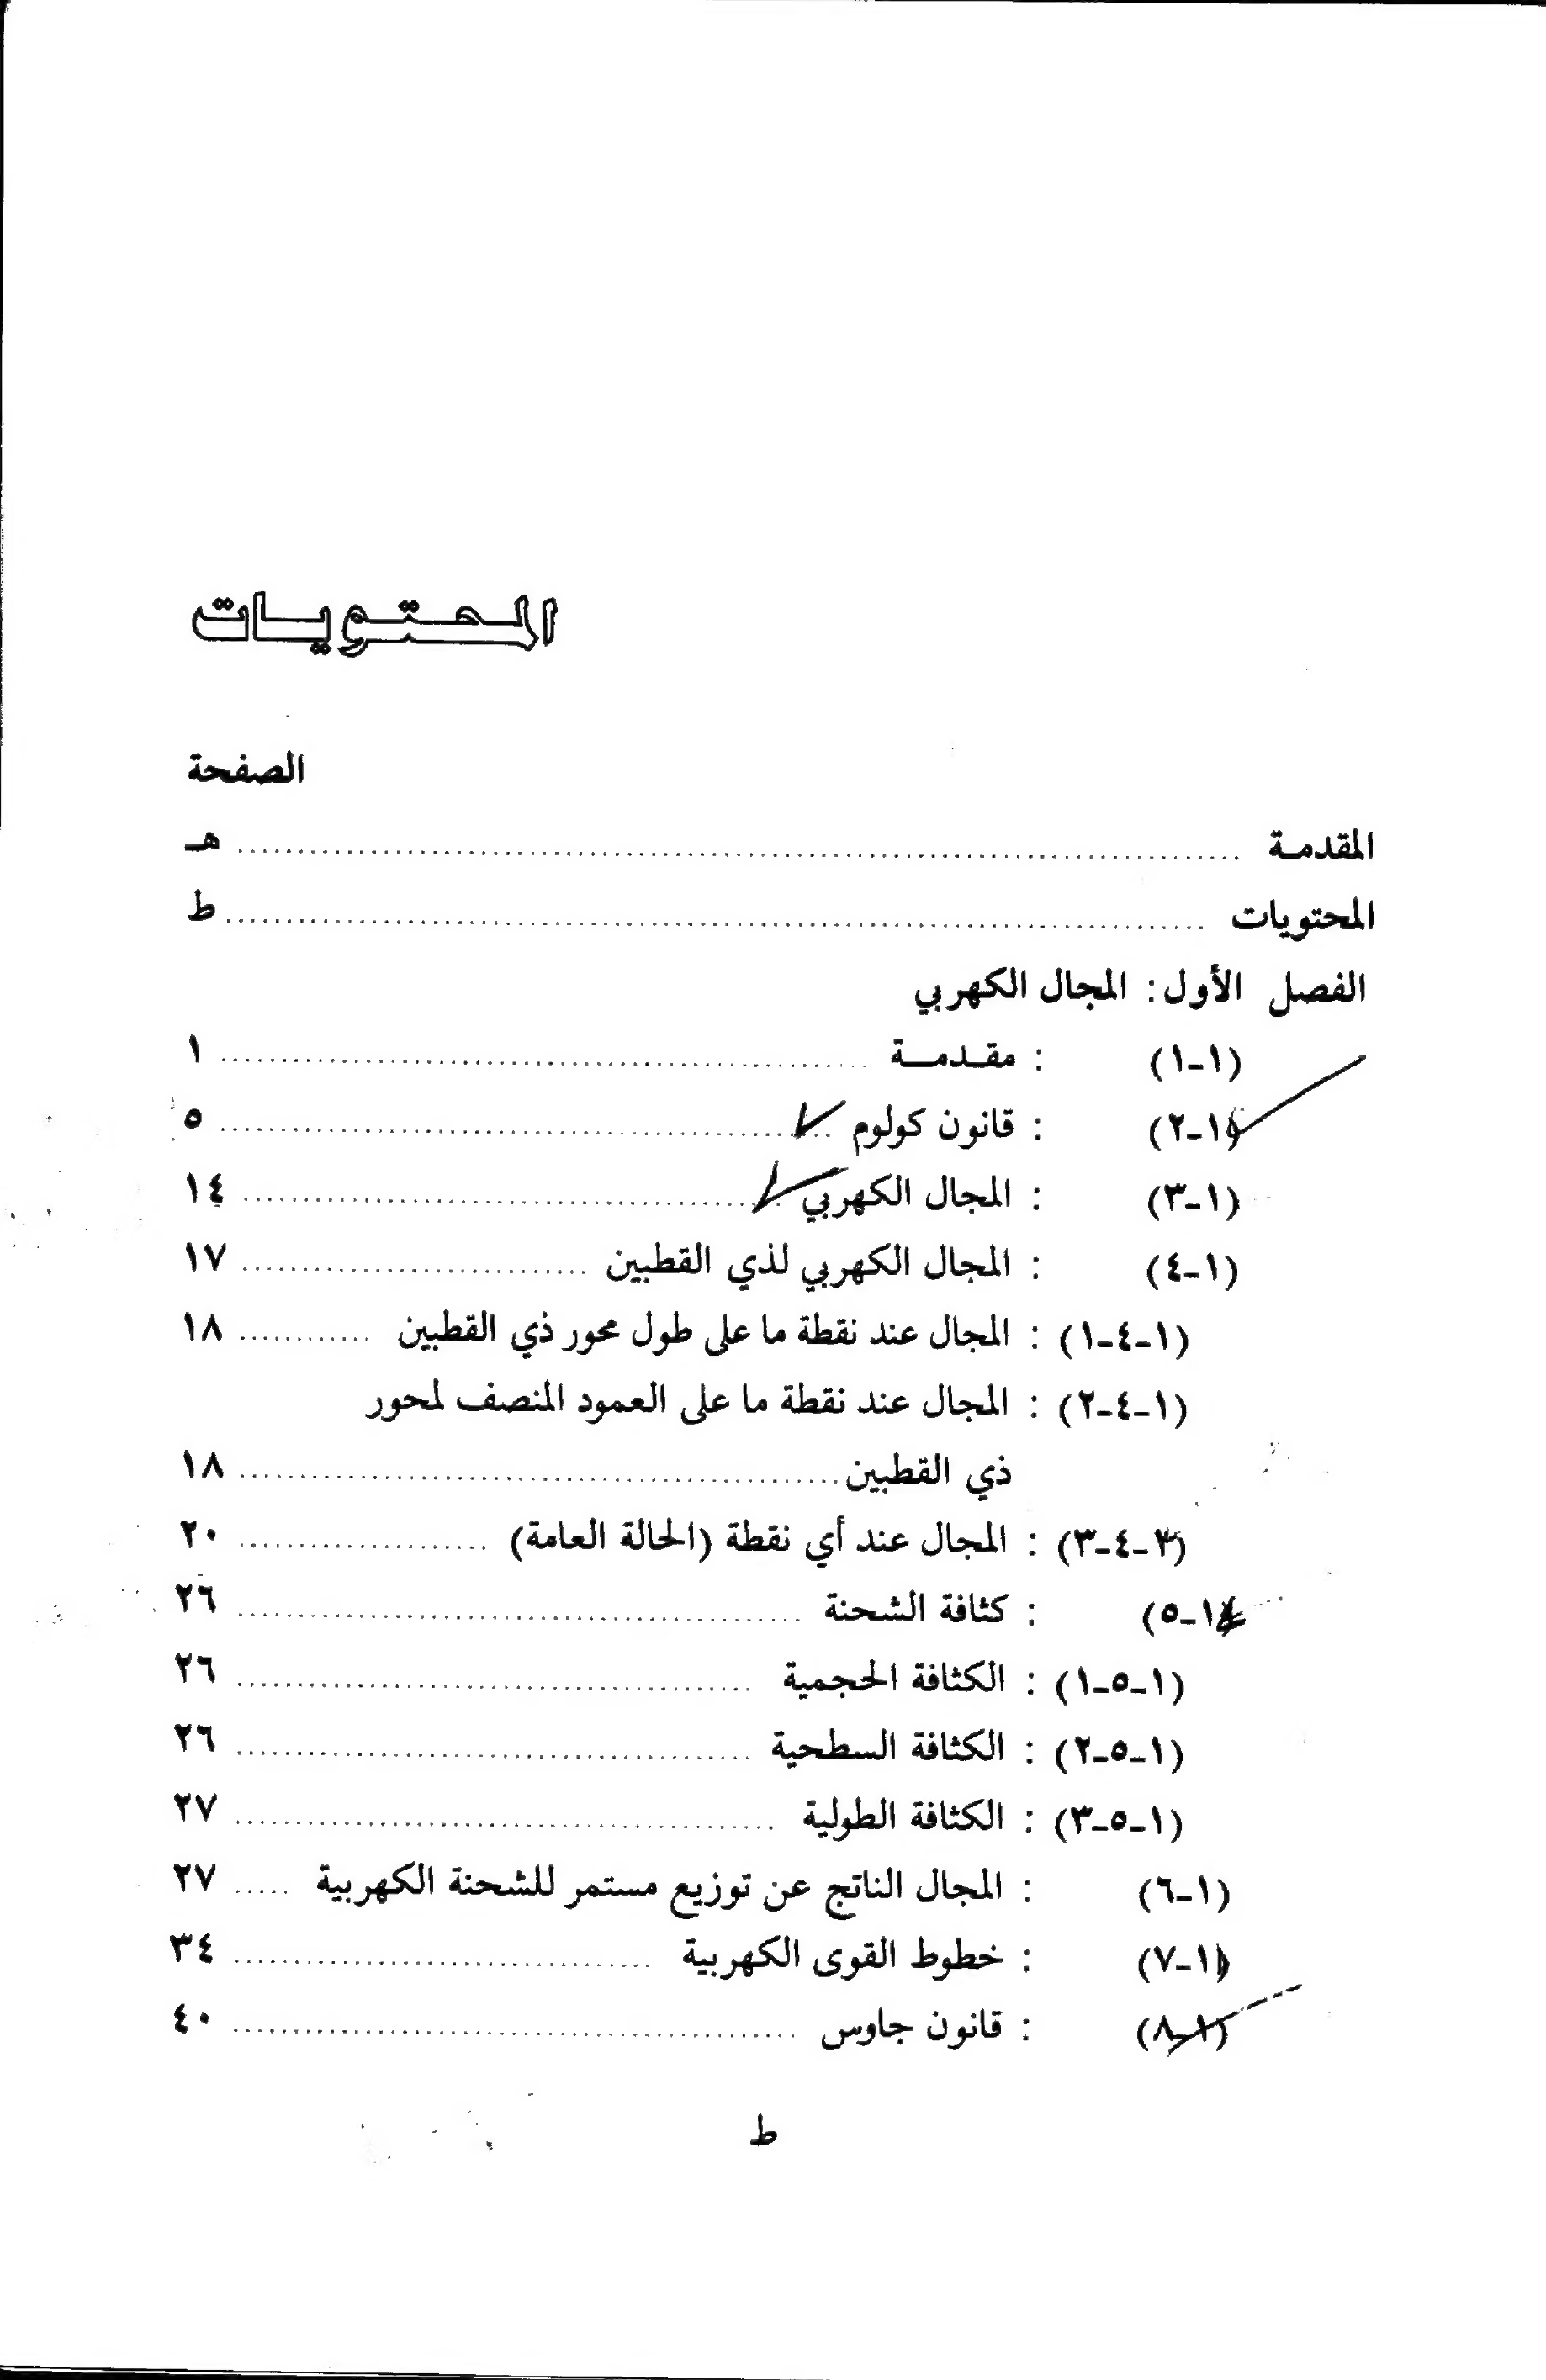 المحتويات
الصفحة
المقدمة ........ هـ
المحتويات ........ ط
الفصل الأول: المجال الكهربي
(١-١) : مقدمة ........ ١
(١-٢) : قانون كولوم ........ ٥
(١-٣) : المجال الكهربي ........ ١٤
(١-٤) : المجال الكهربي لذي القطبين ........ ١٧
(١-٤-١) : المجال عند نقطة ما على طول محور ذي القطبين ........ ١٨
(١-٤-٢) : المجال عند نقطة ما على العمود المنصف لمحور
ذي القطبين ........ ١٨
(٣-٤-٣) : المجال عند أي نقطة (الحالة العامة) ........ ٢٠
(١-٥) : كثافة الشحنة ........ ٢٦
(١-٥-١) : الكثافة الحجمية ........ ٢٦
(١-٥-٢) : الكثافة السطحية ........ ٢٦
(١-٥-٣) : الكثافة الطولية ........ ٢٧
(١-٦) : المجال الناتج عن توزيع مستمر للشحنة الكهربية ..... ٢٧
(١-٧) : خطوط القوى الكهربية ........ ٣٤
(١-٨) : قانون جاوس ........ ٤٠
ط